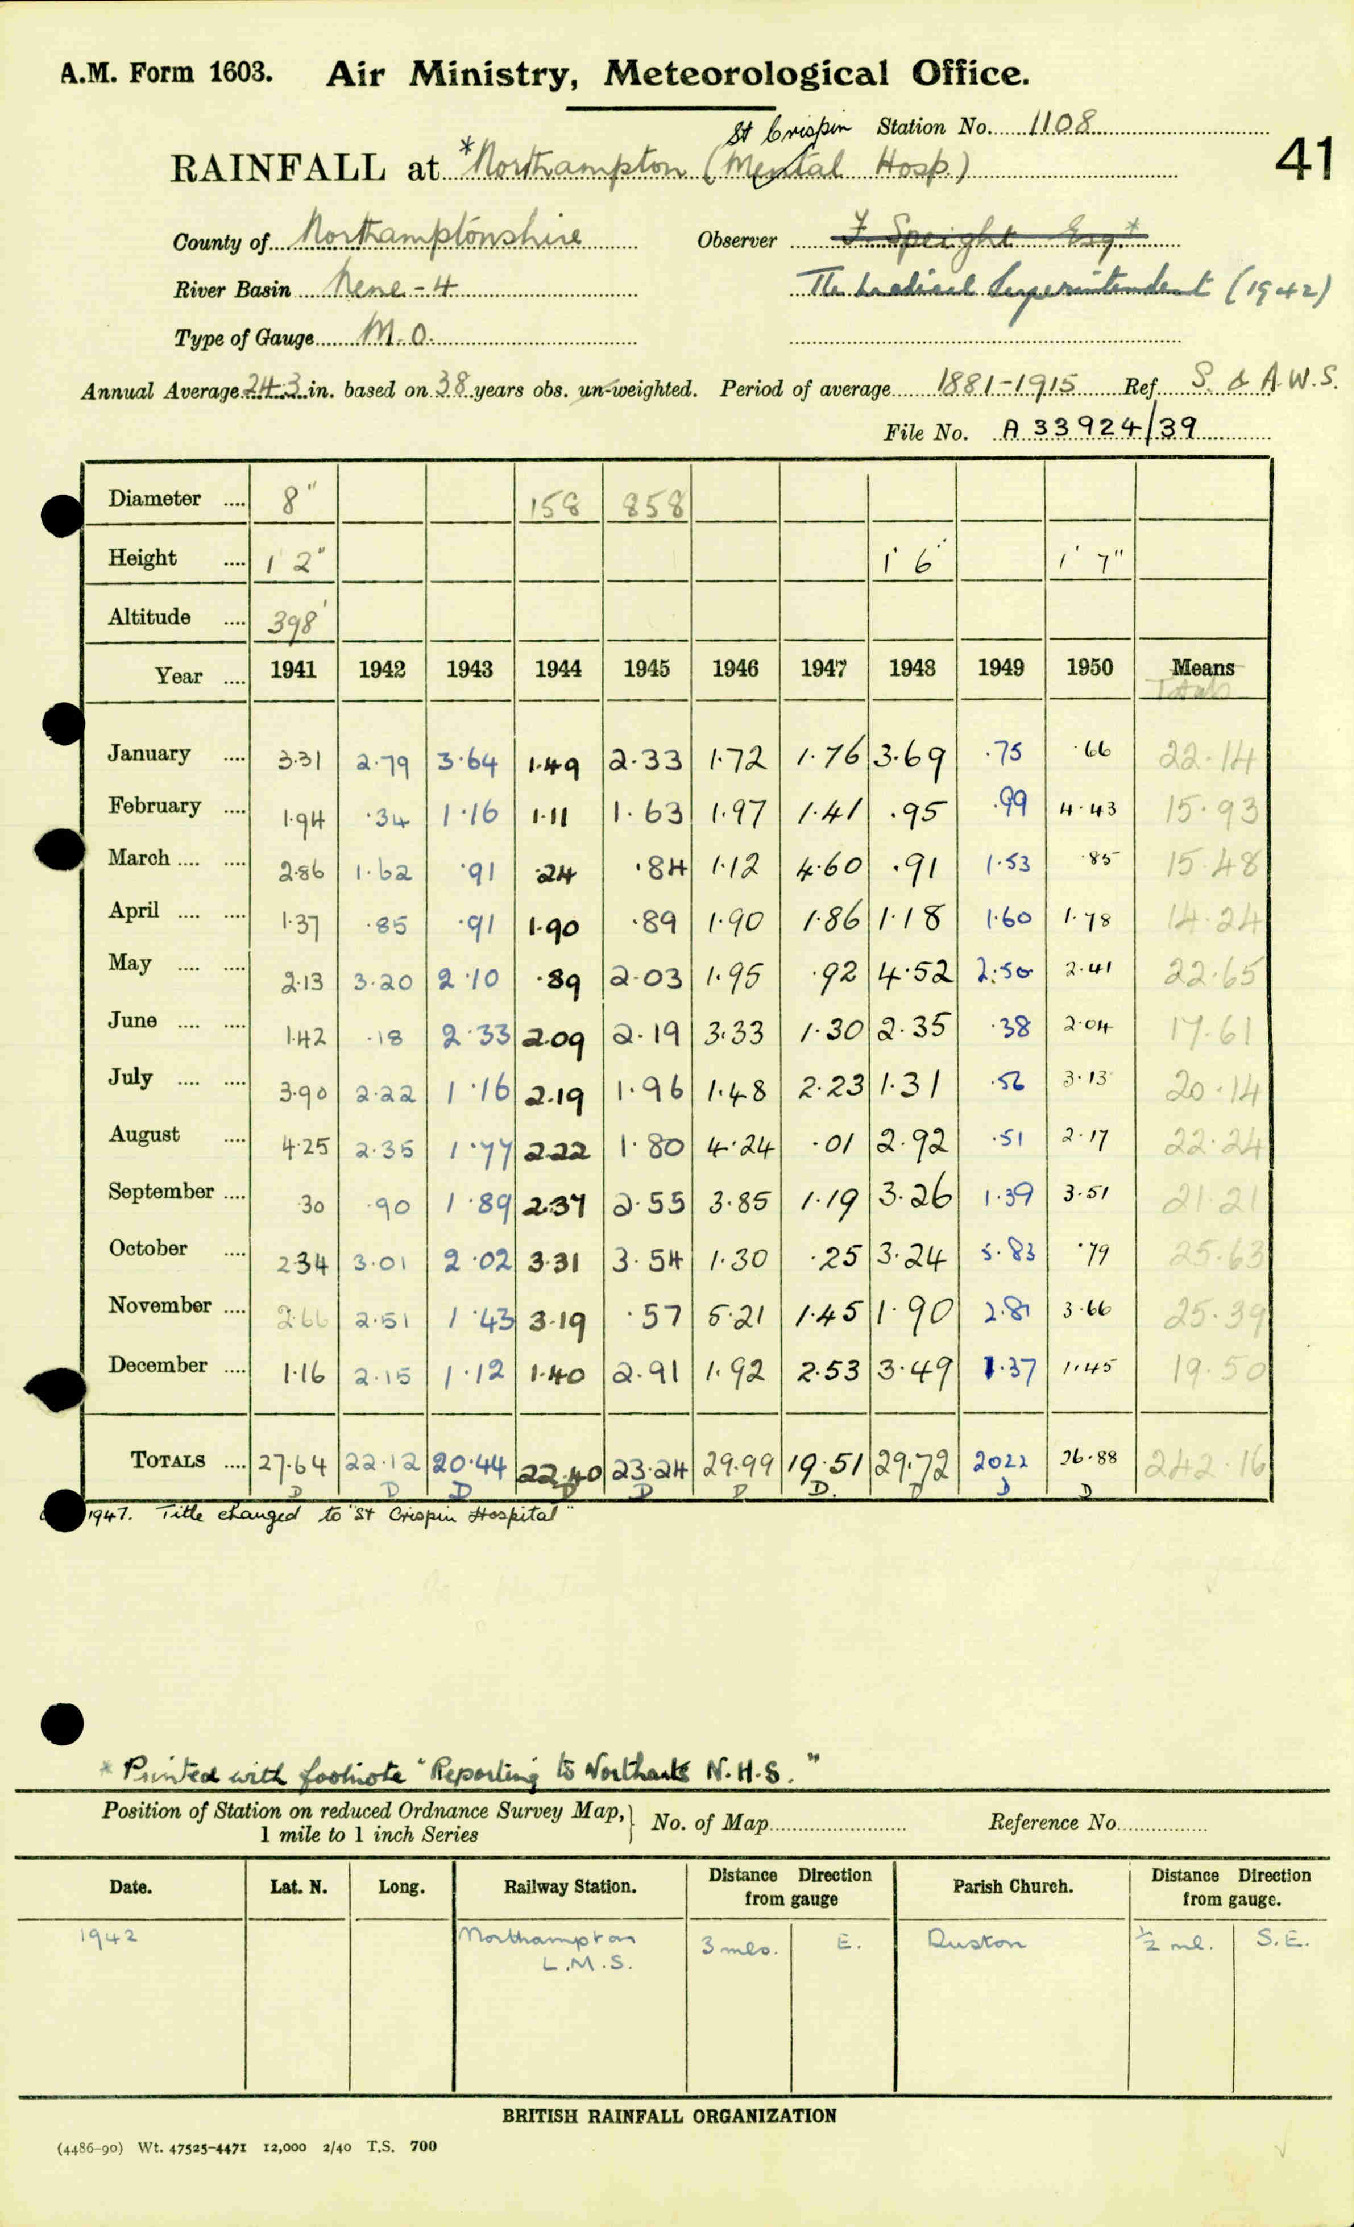 A.M. Form 1603. Air Ministry, Meteorological Office.
St Crispin Station No. 1108
RAINFALL at *Northampton (Mental Hosp.) 41
County of Northamptonshire Observer F. Speight Esq.*
River Basin Nene-4 The Medical Superintendent (1942)
Type of Gauge M.O.
Annual Average 24.3 in. based on 38 years obs. un-weighted. Period of average 1881-1915 Ref. S. & A.W.S.
File No. A 33924/39
Diameter .... 8" 158 858
Height .... 1' 2" 1' 6" 1' 7"
Altitude .... 398'
Year .... 1941 1942 1943 1944 1945 1946 1947 1948 1949 1950 Means
Totals
January .... 3.31 2.79 3.64 1.49 2.33 1.72 1.76 3.69 .75 .66 22.14
February .... 1.94 .34 1.16 1.11 1.63 1.97 1.41 .95 .99 4.43 15.93
March .... .... 2.86 1.62 .91 .24 .84 1.12 4.60 .91 1.53 .85 15.48
April .... .... 1.37 .85 .91 1.90 .89 1.90 1.86 1.18 1.60 1.78 14.24
May .... .... 2.13 3.20 2.10 .89 2.03 1.95 .92 4.52 2.50 2.41 22.65
June .... .... 1.42 .18 2.33 2.09 2.19 3.33 1.30 2.35 .38 2.04 17.61
July .... .... 3.90 2.22 1.16 2.19 1.96 1.48 2.23 1.31 .56 3.13 20.14
August .... 4.25 2.35 1.77 2.22 1.80 4.24 .01 2.92 .51 2.17 22.24
September .... .30 .90 1.89 2.37 2.55 3.85 1.19 3.26 1.39 3.51 21.21
October .... 2.34 3.01 2.02 3.31 3.54 1.30 .25 3.24 5.83 .79 25.63
November .... 2.66 2.51 1.43 3.19 .57 5.21 1.45 1.90 2.81 3.66 25.39
December .... 1.16 2.15 1.12 1.40 2.91 1.92 2.53 3.49 1.37 1.45 19.50
TOTALS .... 27.64 22.12 20.44 22.40 23.24 29.99 19.51 29.72 20.22 26.88 242.16
D D D D D D D. D D D
1947. Title changed to "St Crispin Hospital"
* Printed with footnote "Reporting to Northants N.H.S."
Position of Station on reduced Ordnance Survey Map, 1 mile to 1 inch Series } No. of Map Reference No.
Date. Lat. N. Long. Railway Station. Distance Direction from gauge Parish Church. Distance Direction from gauge.
1942 Northampton L.M.S. 3 mls. E. Duston ½ ml. S.E.
BRITISH RAINFALL ORGANIZATION
(4486-90) Wt. 47525-4471 12,000 2/40 T.S. 700